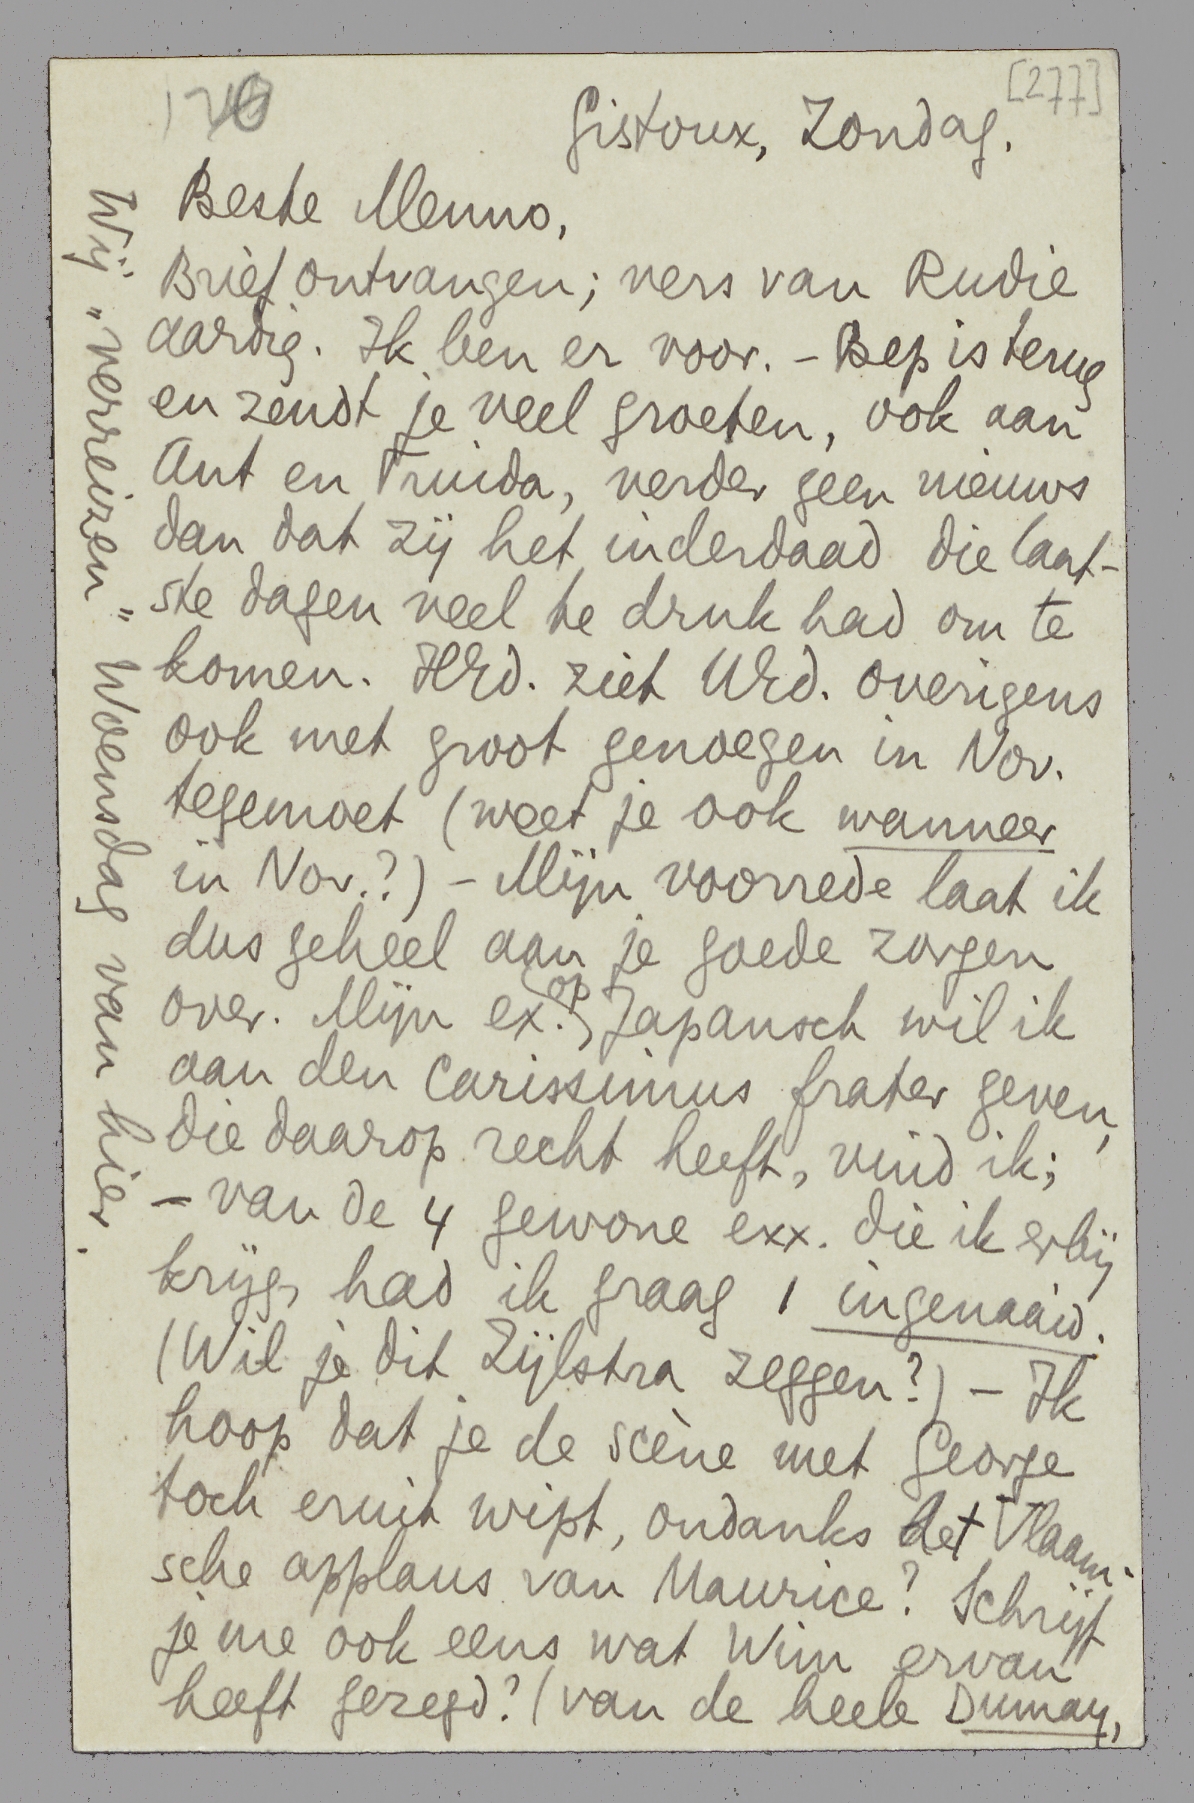 [277]
Gistoux, Zondag.
Beste Menno,
Brief ontvangen; vers van Rudie
aardig. Ik ben er voor. – Bep is terug
en zendt je veel groeten, ook aan
Ant en Truida, verder geen nieuws
dan dat zij het inderdaad die laat-
ste dagen veel te druk had om te
komen. HEd. ziet UEd. overigens
ook met groot genoegen in Nov.
tegemoet (weet je ook wanneer
in Nov.?) – Mijn voorrede laat ik
dus geheel aan je goede zorgen
over. Mijn ex. op Japansch wil ik
aan den Carissimus frater geven,
die daarop recht heeft, vind ik;
– van de 4 gewone exx. die ik erbij
krijg, had ik graag 1 ingenaaid.
(Wil je dit Zijlstra zeggen?) – Ik
hoop dat je de scène met George
toch eruit wipt, ondanks het Vlaam-
sche applaus van Maurice? Schrijf
je me ook eens wat Wim ervan
heeft gezegd? (van de heele Dumay,
Wij „verreizen" Woensdag van hier.